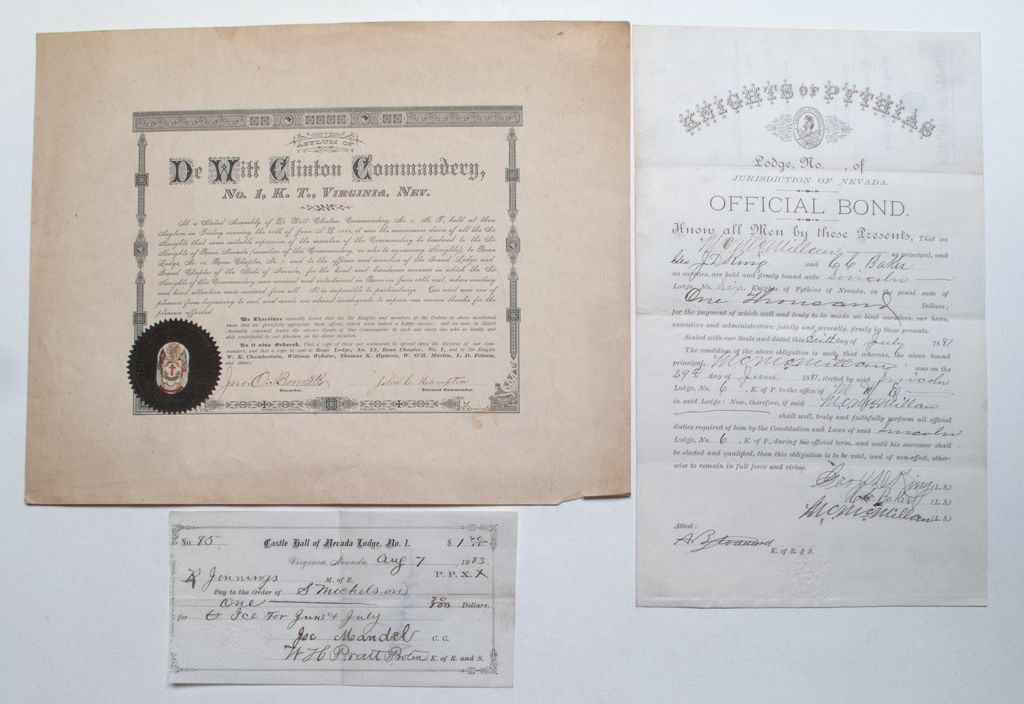 ASYLUM OF
De Witt Clinton Commandery,
No. 1, K. T., Virginia, Nev.
At a Stated Assembly of De Witt Clinton Commandery No. 1, K. T. held at their
Asylum on Friday evening, the of June A. D. it was the unanimous desire of all the Sir
Knights that some suitable expression of the members of the Commandery be tendered to the Sir
Knights of Reno, Nevada (members of this Commandery, or who to Knights), to Reno
Lodge, No. 13, Reno Chapter, No. 7, and to the officers and members of the Grand Lodge and
Grand Chapter of the State of Nevada, for the kind and handsome manner in which the Sir
Knights of this Commandery were received and entertained in Reno on June where courtesy
and kind attention were received from all. It is impossible to particularize. Our visit was one of
pleasure from beginning to end, and words are almost inadequate to express our sincere thanks for the
pleasure afforded.
We Therefore earnestly desire that the Sir Knights and members of the Orders as above mentioned
know that we gratefully appreciate their efforts, which were indeed a happy success; and we now, in Stated
Assembly convened, tender the sincere thanks of this Commandery to each and every one who so kindly and
ably contributed to our pleasure on the above occasion.
Be it also Ordered, That a copy of these our sentiments be spread upon the Records of our Com-
mandery, and that a copy be sent to Reno Lodge, No. 13, Reno Chapter, No. 7, and to Sir Knights
W. R. Chamberlain, William Webster, Thomas K. Hymers, W. O'H. Martin, L. D. Folsom,
and others.
Recorder.
John C. Hampton
Eminent Commander.
KNIGHTS OF PYTHIAS
Lodge, No. , of
JURISDICTION OF NEVADA.
OFFICIAL BOND.
Know all Men by these Presents, That we
McMillan as principal, and
Geo J D King and C C Baker
as sureties, are held and firmly bound unto Lincoln
Lodge No. Six Knights of Pythias of Nevada, in the penal sum of
One Thousand Dollars;
for the payment of which well and truly to be made we bind ourselves, our heirs,
executors and administrators, jointly and severally, firmly by these presents.
Sealed with our Seals and dated this Sixth day of July 1887
The condition of the above obligation is such, that whereas, the above bound
principal, McMillan was on the
29th day of June 1887, elected by said Lincoln
Lodge, No. 6, K. of P. to the office of M of E
in said Lodge: Now, therefore, if said McMillan
shall well, truly and faithfully perform all official
duties required of him by the Constitution and Laws of said Lincoln
Lodge, No. 6, K. of P., during his official term, and until his successor shall
be elected and qualified, then this obligation is to be void, and of non-effect, other-
wise to remain in full force and virtue.
Geo J D King (L. S.)
C C Baker (L. S.)
McMillan (L. S.)
Attest:
K. of R. & S.
No. 85 Castle Hall of Nevada Lodge, No. 1. $ 1 70/100
Virginia, Nevada, Aug 7 1883.
R Jennings M. of E. P. P. X. X
Pay to the Order of S Michelson
One 70/100 Dollars,
for Ice For June & July
Joe Mandel C. C.
W H Pratt Protem K. of R. and S.